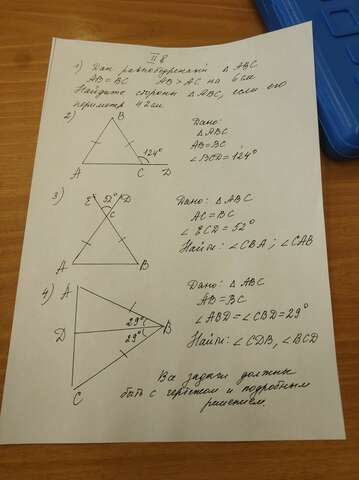 II в
1) Дан равнобедренный △ ABC
AB = BC AB > AC на 6 см
Найдите стороны △ ABC, если его
периметр 42 см.
2)
B
124°
A C D
Дано:
△ ABC
AB = BC
∠ BCD = 124°
3)
E 52° D
C
A B
Дано: △ ABC
AC = BC
∠ ECD = 52°
Найти: ∠ CBA ; ∠ CAB
4)
A
29°
D B
29°
C
Дано: △ ABC
AB = BC
∠ ABD = ∠ CBD = 29°
Найти: ∠ CDB, ∠ BCD
Все задачи должны
быть с чертежом и подробным
решением.